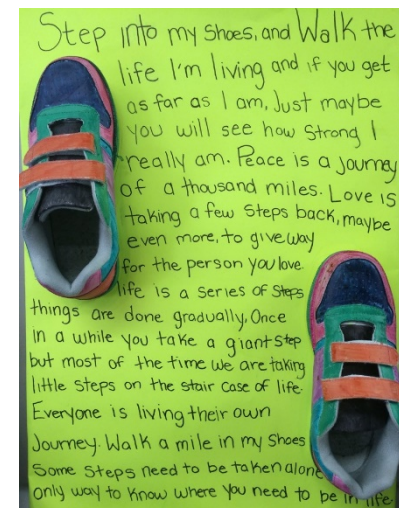 Step into my Shoes, and Walk the
life I'm living and if you get
as far as I am, Just maybe
you will see how Strong I
really am. Peace is a journey
of a thousand miles. Love is
taking a few Steps back, maybe
even more, to give way
for the person you love.
life is a series of Steps
things are done gradually. Once
in a while you take a giant Step
but most of the time we are taking
little steps on the stair case of life.
Everyone is living their own
Journey. Walk a mile in my Shoes
Some Steps need to be taken alone
only way to Know where you need to be in life.